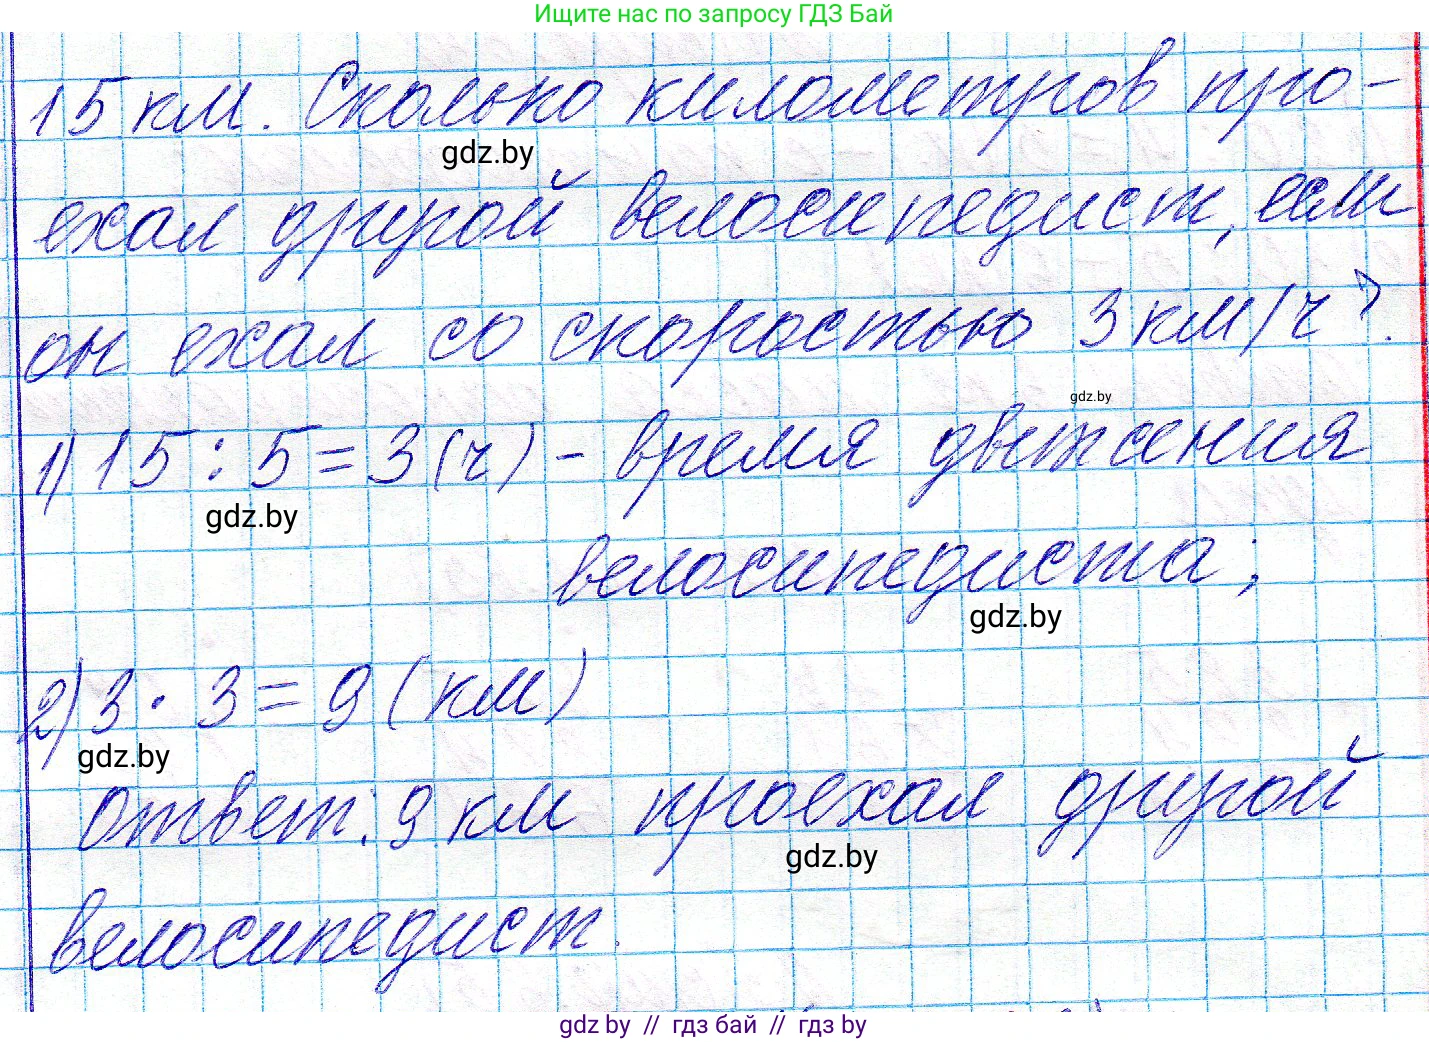 Ищите нас по запросу ГДЗ Бай
15 км. Сколько километров про-
gdz.by
ехал другой велосипедист, если
он ехал со скоростью 3 км/ч?.
gdz.by
1) 15 : 5 = 3 (ч) - время движения
gdz.by
велосипедиста;
gdz.by
2) 3 · 3 = 9 (км)
gdz.by
Ответ: 9 км проехал другой
gdz.by
велосипедист.
gdz by // гдз бай // гдз by